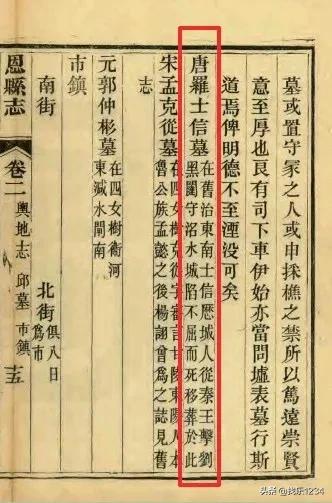 墓或置守冢之人或申採樵之禁所以篤遠崇賢
意至厚也良有司下車伊始亦當問墟表墓行斯
道焉俾明德不至湮没可矣
唐羅士信墓
在舊治東南士信歴城人從秦王擊劉
黑闥守洺水城陷不屈而死移葬於此
宋孟克從墓
在四女樹克從字審言甘陵東陵人本
魯公族孟懿之後楊詡曾爲之誌見舊
志
元郭仲彬墓
在四女樹衛河
東減水閘南
市鎮
南街
北街
俱八日
爲市
恩縣志
卷二
輿地志
邱墓
市鎮
十五
头条 @找乐1234